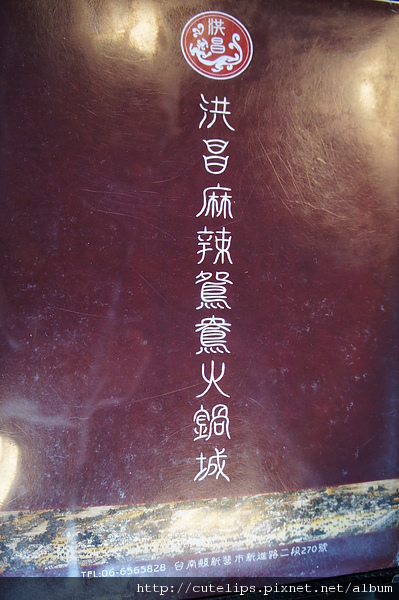 洪昌
洪昌麻辣鴛鴦火鍋城
TEL:06-6565828 南縣新營市新進路二段270號
http://cutelips.pixnet.net/album